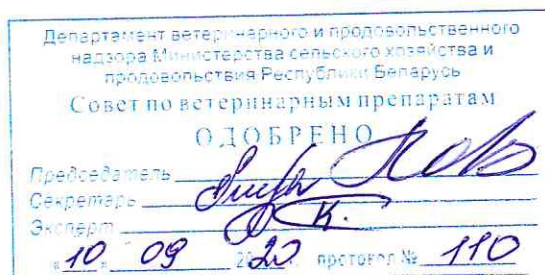 Департамент ветеринарного и продовольственного
надзора Министерства сельского хозяйства и
продовольствия Республики Беларусь
Совет по ветеринарным препаратам
ОДОБРЕНО
Председатель
Секретарь
Эксперт
«10» 09 2020 протокол № 110